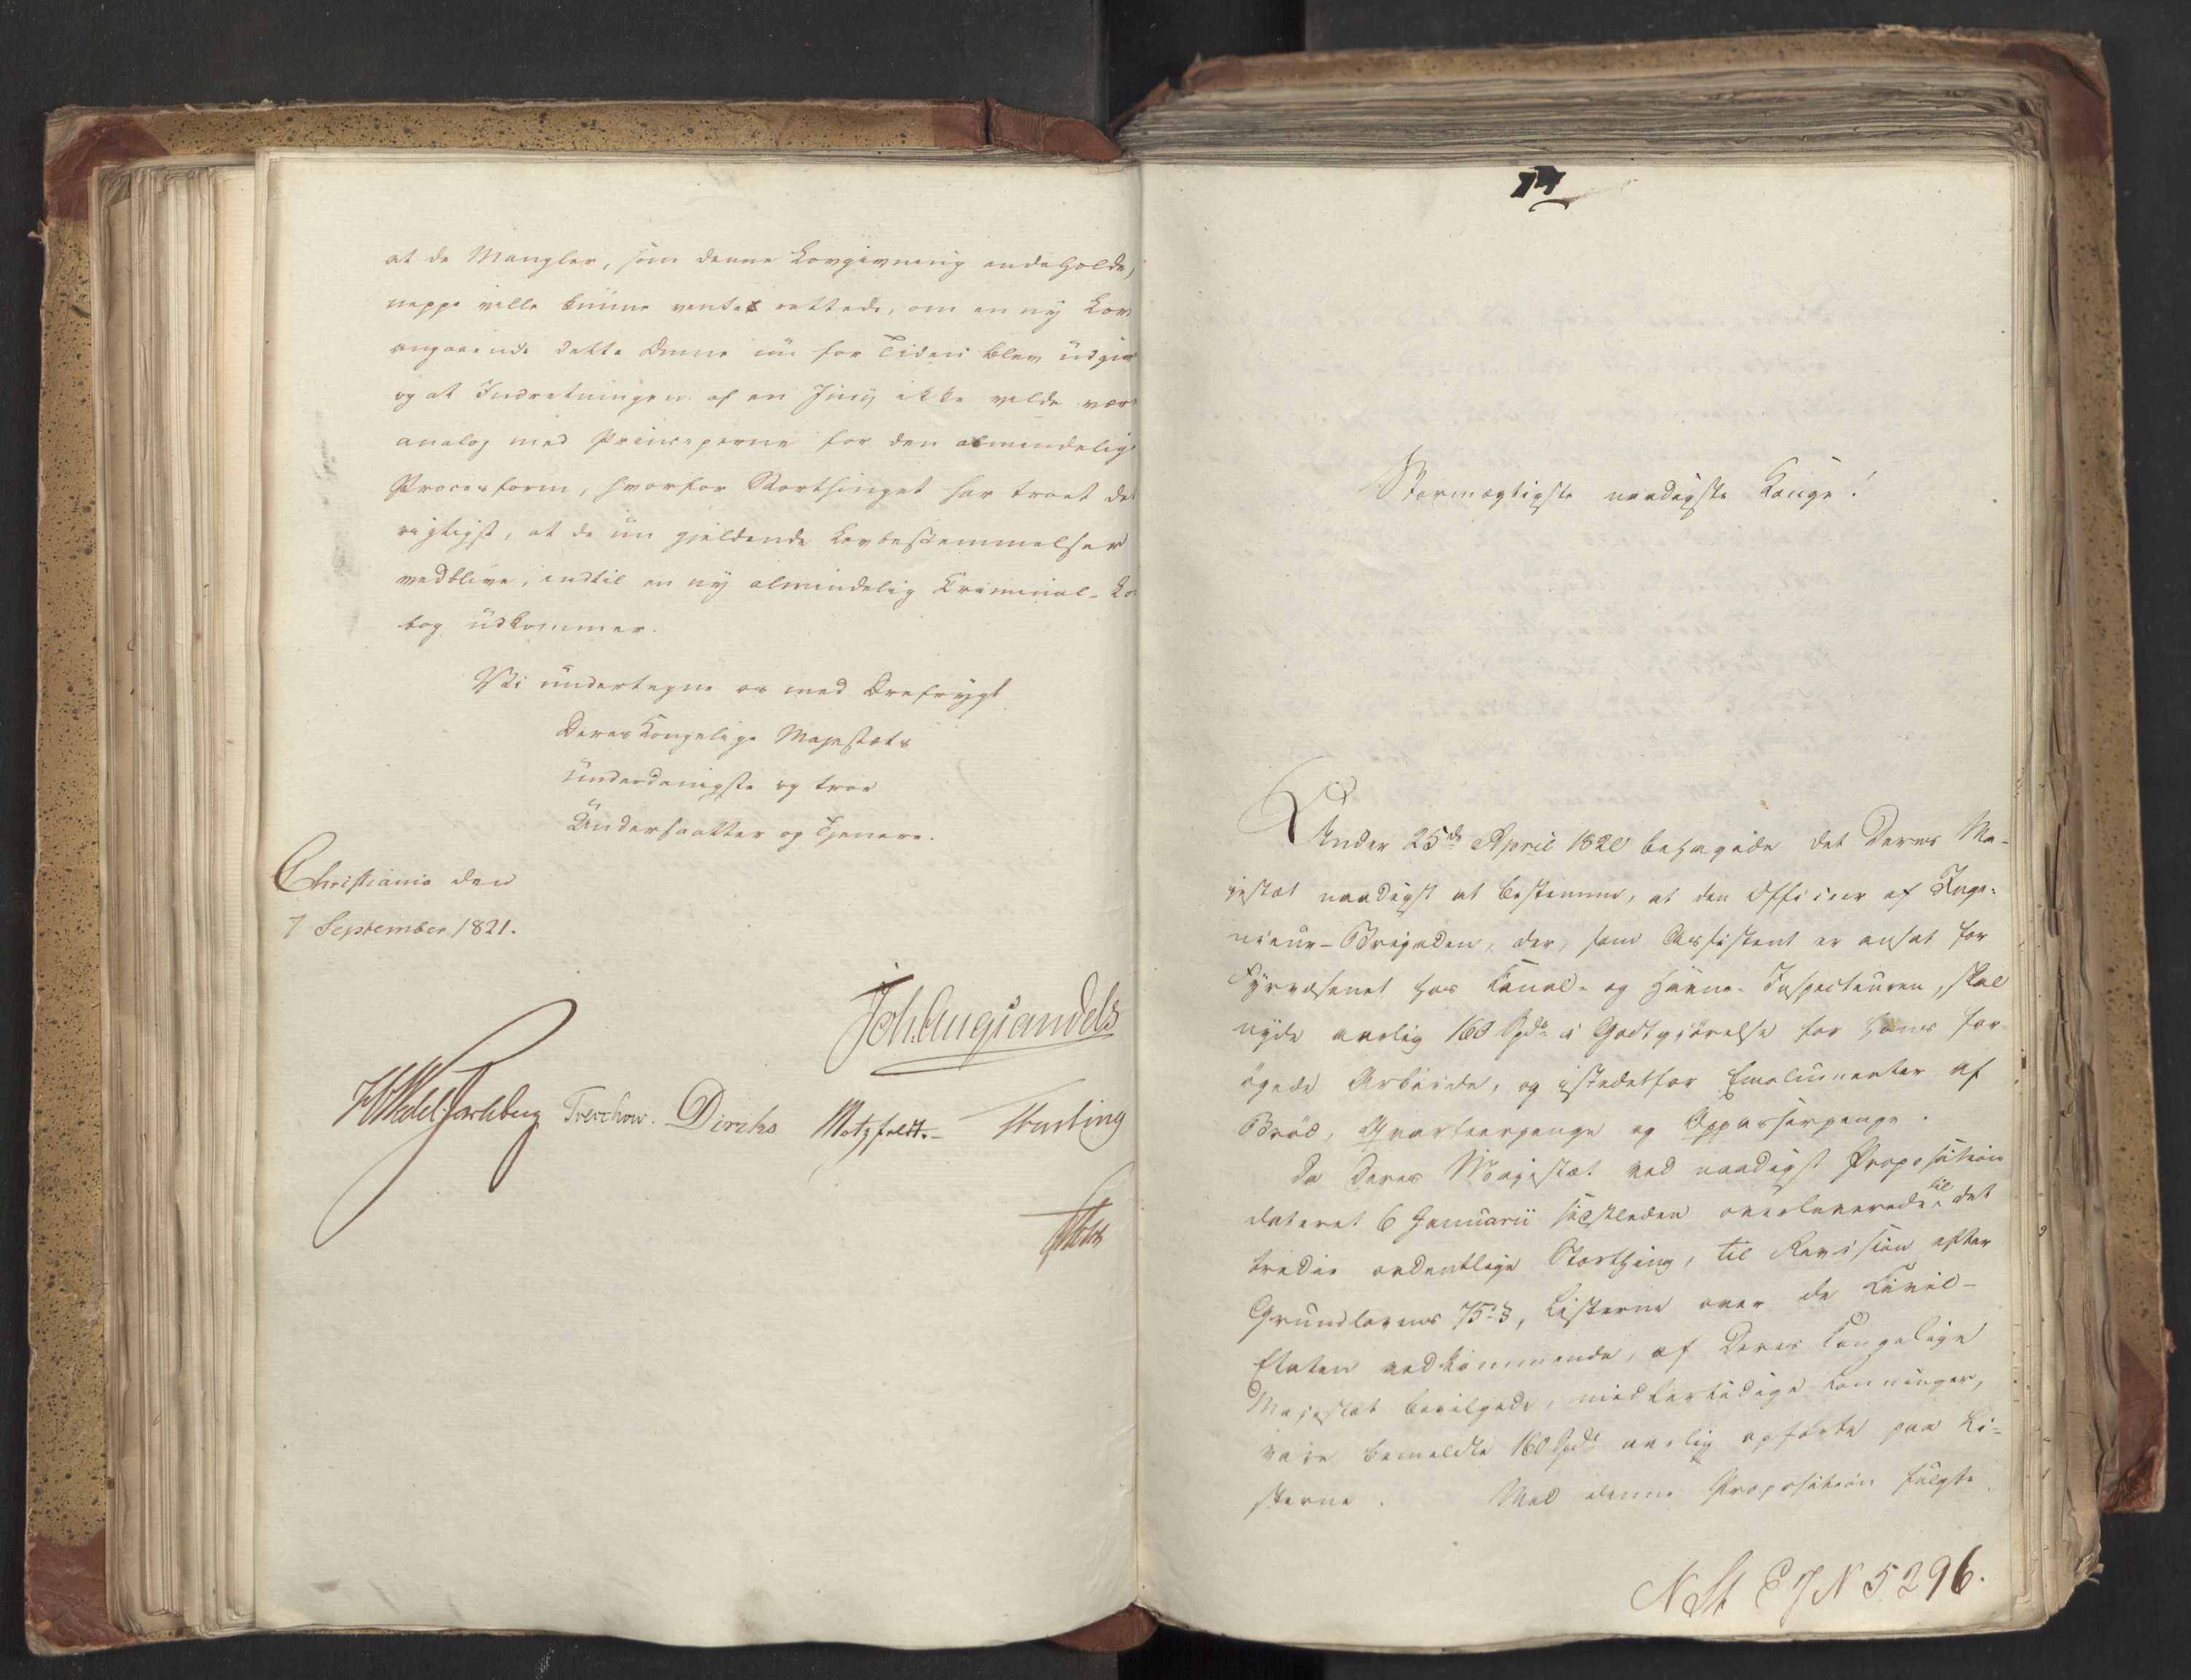 at de Mangler, som denne Lovgivning indeholde,
neppe ville kunne ventes rettede, om en ny Lov
angaaende dette Emne nu for Tiden blev udgiv
og at Indretningen af en Jury ikke vilde vær
analog med Principerne for den almindelig
Procesform, hvorfor Storthinget har troet det
rigtigst, at de nu gjeldende Lovbestemmelser
vedblive, indtil en ny almindelig Criminal-Lo
bog udkommer.
Vi undertegne os med Ærefrygt
Deres Kongelige Majestæts
underdanigste og troe
Undersaatter og Tjenere.
Christiania den
7 September 1821.
Joh. Aug. Sandels
HWedel Jarlsberg Treschow. Diriks Motzfeldt. Fasting
Holst
14
Stormægtigste naadigste Konge!
Under 25de April 1820 behagede det Deres Ma-
jestæt naadigst at bestemme, at den Officier af Inge-
nieur-Brigaden, der, som Assistent er ansat for
Fyrvæsenet hos Canal- og Havne-Inspecteuren, skal
nyde aarlig 160 Spd i Godtgjörelse for hans for-
ögede Arbeide, og istedetfor Emolumenter af
Bröd, Qvarteerpenge og Oppasserpenge.
Da Deres Majestæt ved naadigst Proposition
dateret 6 Januarii sidstleden overleverede til det
tredie ordentlige Storthing, til Revision efter
Grundlovens 75 §, Listerne over de Civil-
Etaten vedkommende, af Deres Kongelige
Majestæt bevilgede, midlertidige Lönninger,
vare bemeldte 160 Spd aarlig opförte paa Li-
sterne. Med denne Proposition fulgte
N St E J N 5296.